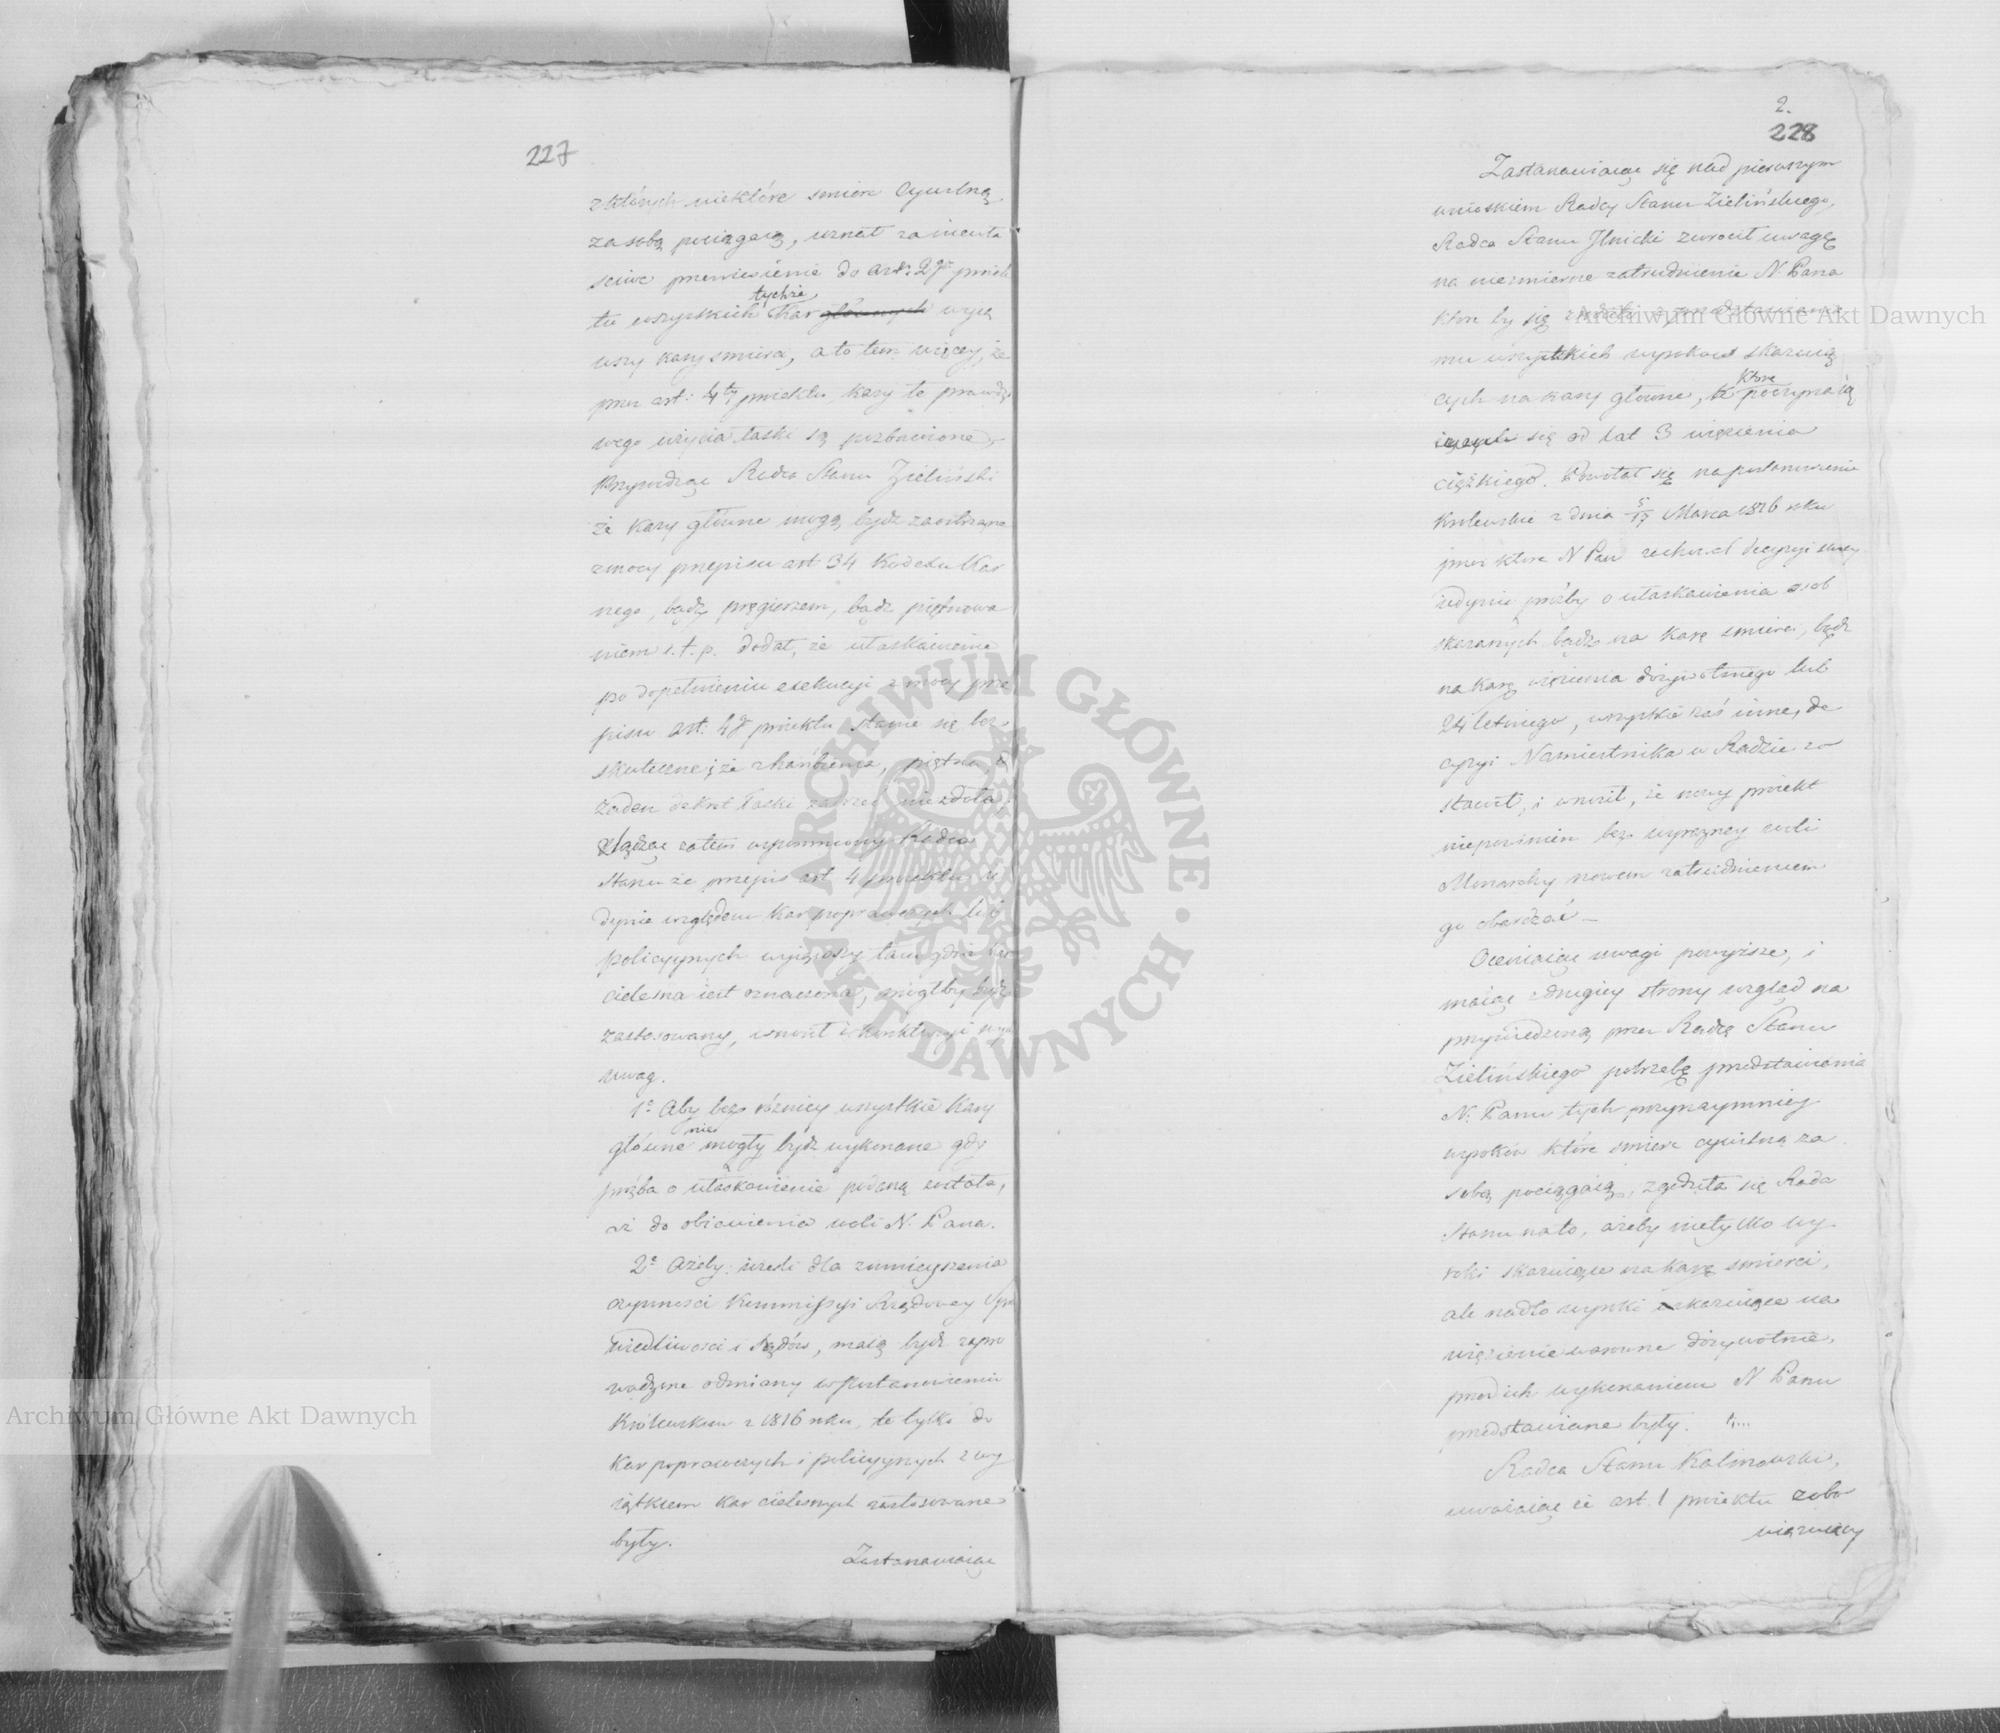 227
z których niektóre smierc Cywilną
za sobą pociągaią, uznał za niewła
sciwe przeniesienie do art: 2go proiek
tu wszystkich tychże kar głównych wyią
wszy karę smierci, a to tem więcey, że
przez art: 4ty proiektu kary te prawdzi
wego użycia łaski są pozbawione,
Radca Stanu Zieliński
że kary główne mogą bydź zaostrzone
z mocy przepisu art 34 Kodexu Kar
nego, bądź pręgierzem, bądź piętnowa
niem i. t. p. dodał, że ułaskawienie
po dopełnieniu exekucyi z mocy prze
pisu art: 4go proiektu stanie się bez
skuteczne; że zhańbienia, piętna
żaden dekret łaski zatrzeć niezdoła.
zatem wspomniony Radca
Stanu że przepis art 4 proiektu ie
dynie względem kar poprawczych lub
policyynych wyiąwszy tam gdzie kara
cielesna iest oznaczona, mógłby bydź
zastosowany, wnosił w
uwag.
1e Aby bez różnicy wszystkie kary
główne nie mogły bydź wykonane gdy
prośba o ułaskawienie podaną została,
aż do obiawienia woli N. Pana.
2e Ażeby ieżeli dla zmnieyszenia
czynnosci Kommissyi Rządowey Spra
wiedliwości i Sądów, maią bydź zapro
wadzone odmiany w Postanowieniu
Królewskim z 1816 roku, te tylko do
kar poprawczych i policyynych z wy
iątkiem kar cielesnych zastosowane
były.
Zastanawiaiąc
2.
228
Zastanawiaiąc się nad pierwszym
wnioskiem Radcy Stanu Zielińskiego,
Radca Stanu Ilnicki zwrócił uwagę
na niezmierne zatrudnienie N. Pana
które by się z przedstawiania
mu wszystkich wyroków skazuią
cych na kary główne, które poczynaią
się od lat 3 więzienia
ciężkiego. Powołał się na postanowienie
Królewskie z dnia 5/17 Marca 1816 roku
przez które N Pan zachował decyzyi swey
iedynie prośby o ułaskawienia osob
skazanych bądź na karę smierci, bądź
na karę więzienia dożywotniego lub
24 letniego, wszystkie zaś inne, de
cyzyi Namiestnika w Radzie zo
stawił, i wnosił, że nowy proiekt
niepowinien bez wyrazney woli
Monarchy nowem zatrudnieniem
go obarczać _
Oceniaiąc uwagi powyższe, i
maiąc z drugiey strony wzgląd na
przywiedzioną przez Radcę Stanu
Zielińskiego potrzebę przedstawienia
N. Panu tych przynaymniey
wyroków które smierc cywilną za
sobą pociągaią, zgodziła się Rada
Stanu na to, ażeby nietylko wy
roki skazuiące na karę smierci,
ale nadto wyroki skazuiące na
więzienie warowne dożywotnie,
przed ich wykonaniem N Panu
przedstawiane były.
Radca Stanu Kalinowski,
uważaiąc że art. 1 proiektu zobo
wiązuiący
Archiwum Główne Akt Dawnych
Archiwum Główne Akt Dawnych
ARCHIWUM GŁÓWNE AKT DAWNYCH